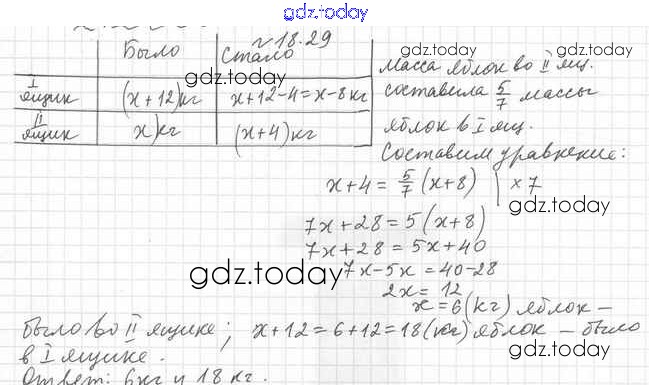 gdz.today
№ 18.29
Было Стало
gdz.today
I ящик (x+12)кг x+12-4=x-8кг
II ящик x)кг (x+4)кг
gdz.today
масса яблок во II ящ.
составила 5/7 массы
яблок в I ящ.
Составим уравнение:
x+4 = 5/7 (x+8) | ×7
gdz.today
7x+28 = 5(x+8)
7x+28 = 5x+40
gdz.today
7x-5x = 40-28
2x = 12
x = 6(кг) яблок –
было во II ящике; x+12=6+12=18(кг) яблок – было
gdz.today
в I ящике.
Ответ: 6кг и 18 кг.